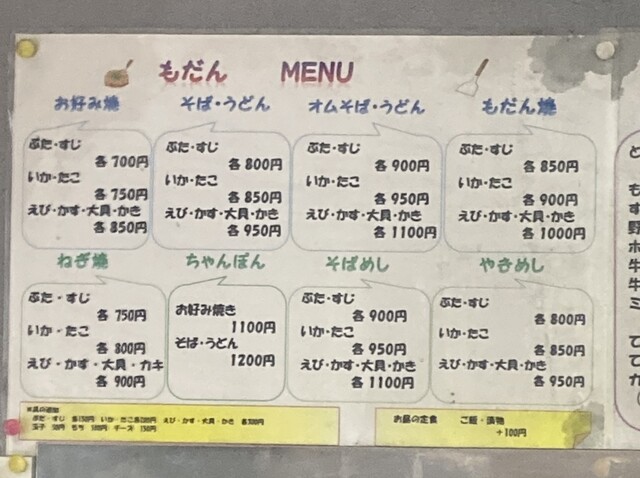 もだん MENU
お好み焼
ぶた・すじ
各700円
いか・たこ
各750円
えび・かす・大貝・かき
各850円
そば・うどん
ぶた・すじ
各800円
いか・たこ
各850円
えび・かす・大貝・かき
各950円
オムそば・うどん
ぶた・すじ
各900円
いか・たこ
各950円
えび・かす・大貝・かき
各1100円
もだん焼
ぶた・すじ
各850円
いか・たこ
各900円
えび・かす・大貝・かき
各1000円
ねぎ焼
ぶた・すじ
各750円
いか・たこ
各800円
えび・かす・大貝・カキ
各900円
ちゃんぽん
お好み焼き
1100円
そば・うどん
1200円
そばめし
ぶた・すじ
各900円
いか・たこ
各950円
えび・かす・大貝・かき
各1100円
やきめし
ぶた・すじ
各800円
いか・たこ
各850円
えび・かす・大貝・かき
各950円
※具の追加
ぶた・すじ 各150円 いか・たこ各200円 えび・かす・大貝・かき 各300円
玉子 50円 もち 100円 チーズ 150円
お昼の定食 ご飯・漬物
+100円
ど
も
す
野
ホ
牛
牛
ミ
て
て
カ